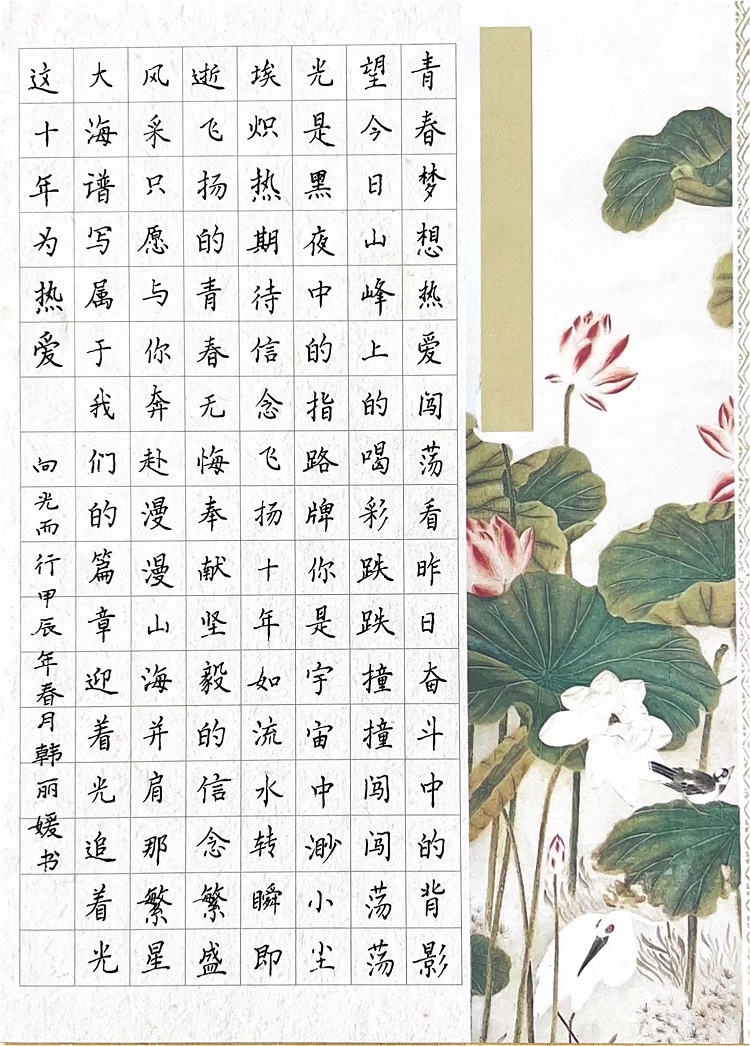 青春梦想热爱闯荡看昨日奋斗中的背影
望今日山峰上的喝彩跌跌撞撞闯闯荡荡
光是黑夜中的指路牌你是宇宙中渺小尘
埃炽热期待信念飞扬十年如流水转瞬即
逝飞扬的青春无悔奉献坚毅的信念繁盛
风采只愿与你奔赴漫漫山海并肩那繁星
大海谱写属于我们的篇章迎着光追着光
这十年为热爱
向光而行甲辰年春月韩丽媛书